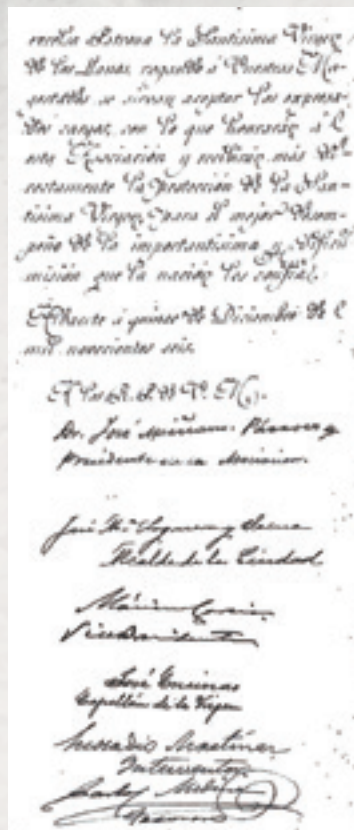 celsa Patrona la Santísima Virgen
de los Llanos, rogando á Vuestras Ma-
gestades se sirvan aceptar los expresa-
dos cargos, con lo que honrarán á
esta Asociación y recibirán más di-
rectamente la protección de la San-
tísima Virgen para el mejor desem-
peño de la importantísima y difícil
misión que la nación les confía.
Albacete á quince de Diciembre de
mil novecientos seis.
A los R. P. de V. M.
Dr. José
Presidente de la Asociación.
José Mª y
Alcalde de la Ciudad
José Encinas
Capellán de la Virgen
Martínez
Interventor